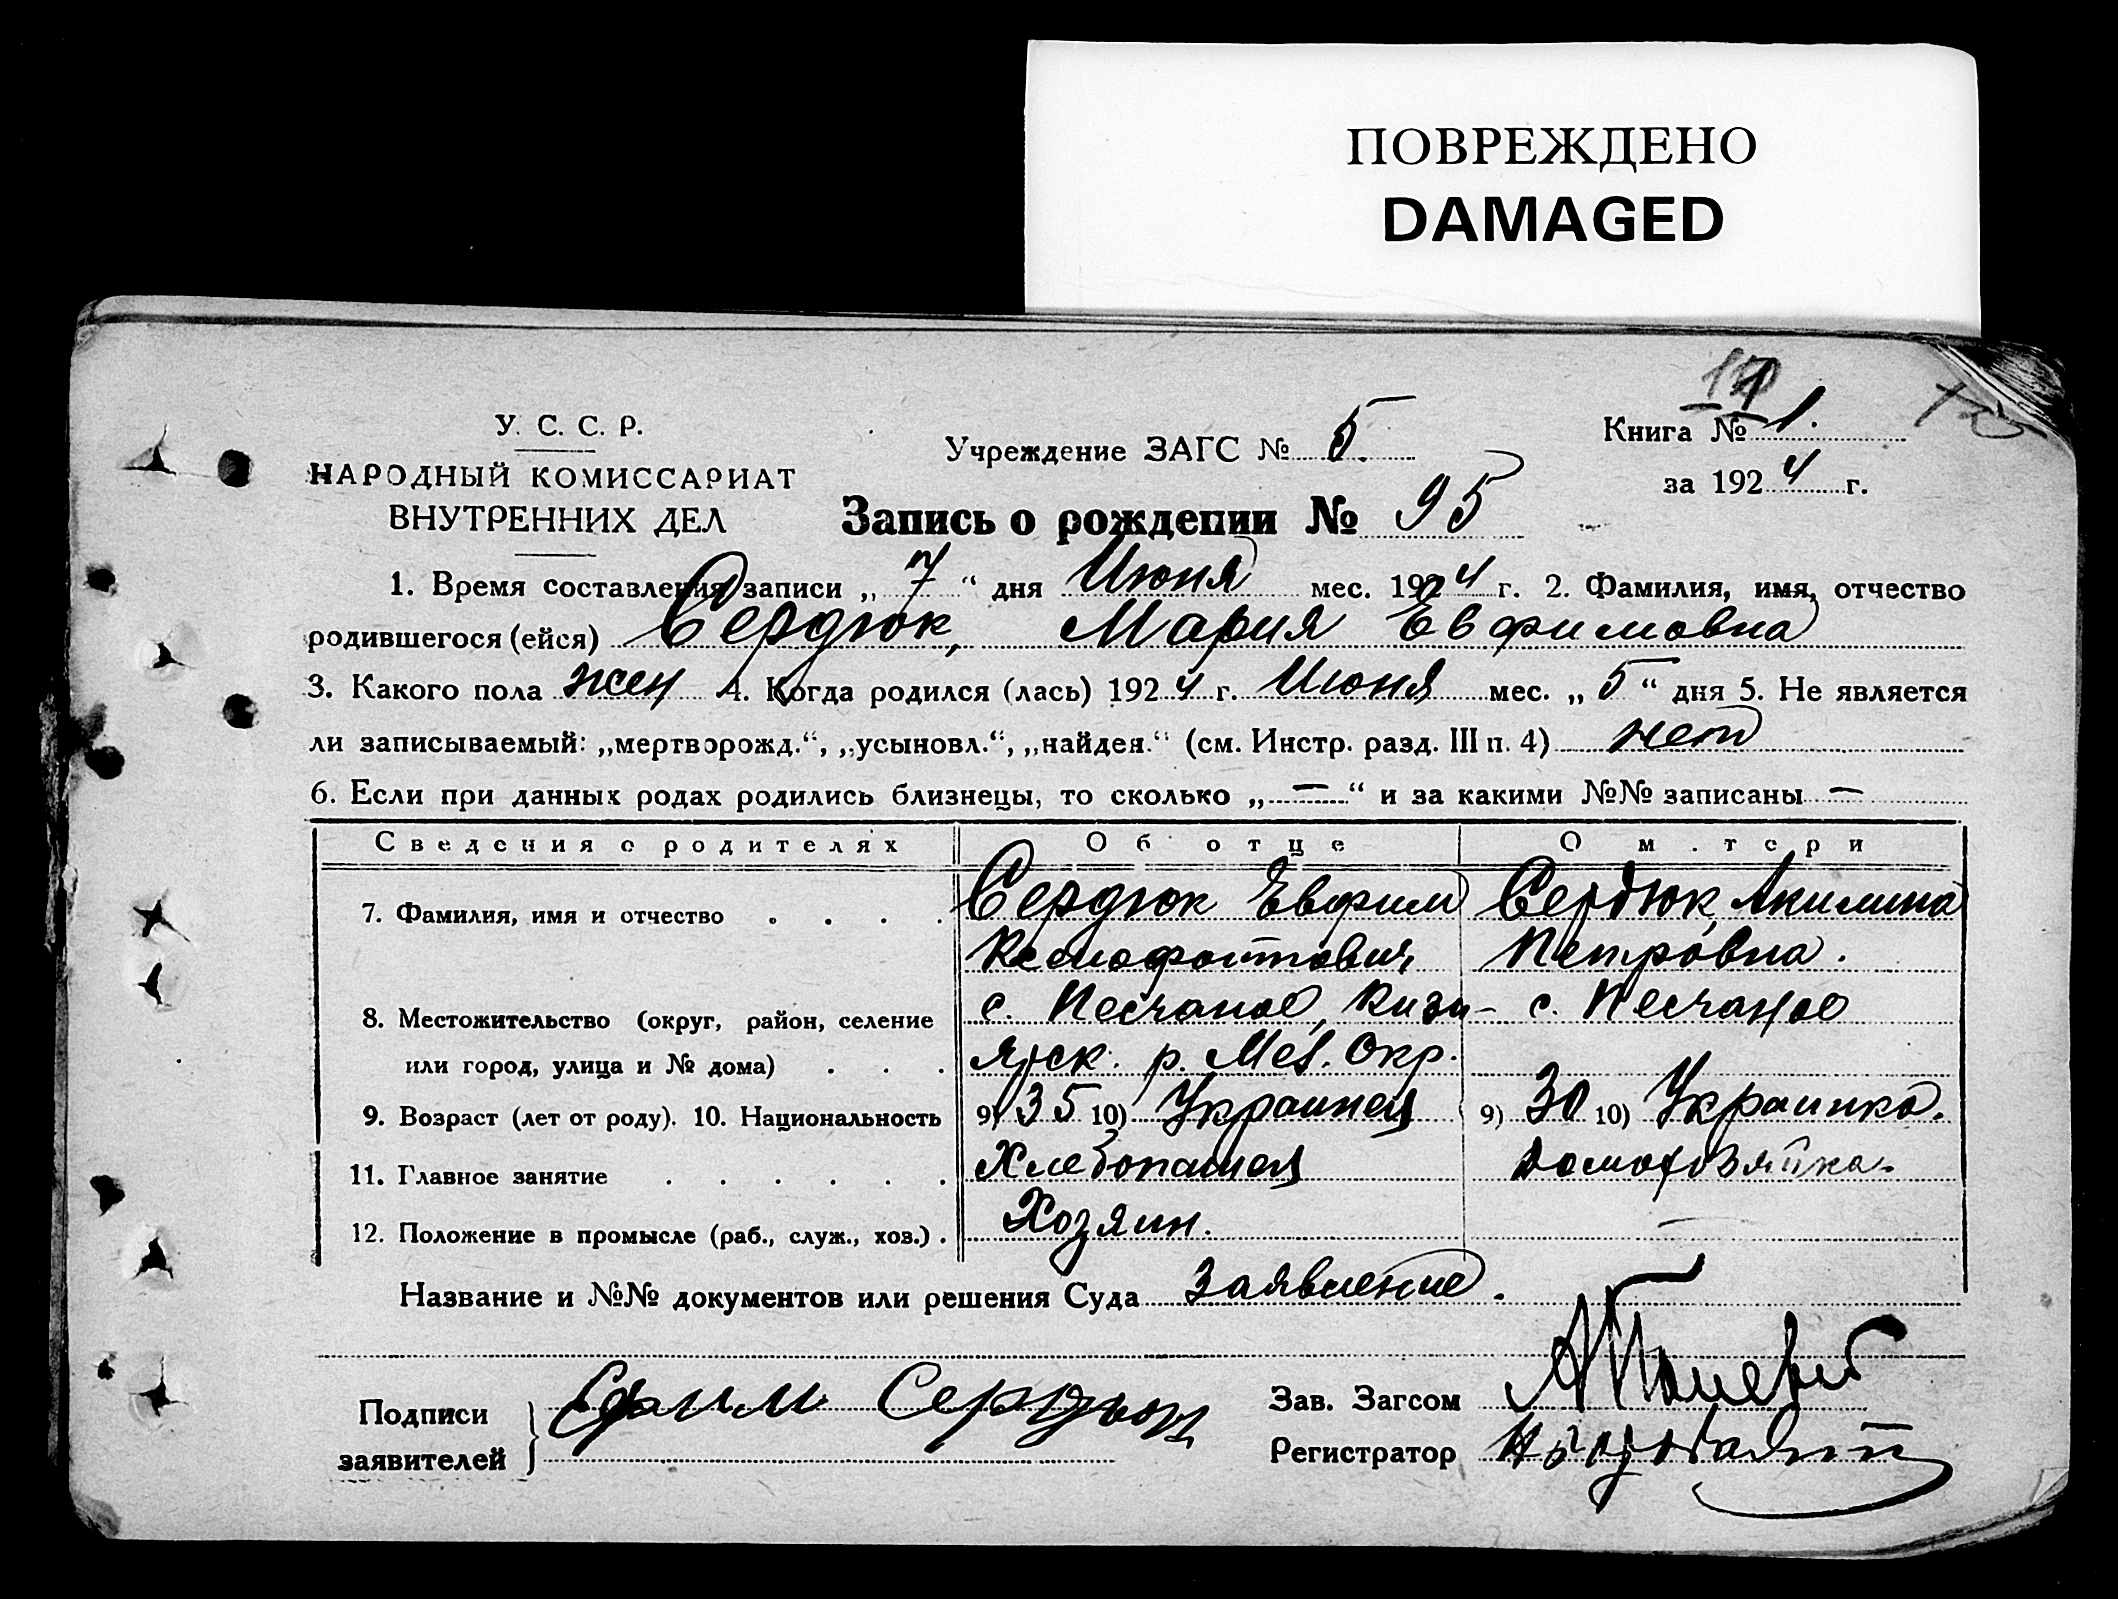 ПОВРЕЖДЕНО
DAMAGED
У. С. С. Р.
НАРОДНЫЙ КОМИССАРИАТ
ВНУТРЕННИХ ДЕЛ
Учреждение ЗАГС № 5.
Книга № 1.
за 1924 г.
Запись о рождении № 95
1. Время составления записи „7“ дня Июня мес. 1924 г. 2. Фамилия, имя, отчество
родившегося (ейся) Сердюк, Мария Евфимовна
3. Какого пола жен 4. Когда родился (лась) 1924 г. Июня мес. „5“ дня 5. Не является
ли записываемый: „мертворожд.“, „усыновл.“, „найден.“ (см. Инстр. разд. III п. 4) нет
6. Если при данных родах родились близнецы, то сколько „—“ и за какими №№ записаны —
Сведения о родителях Об отце О м.тери
7. Фамилия, имя и отчество . . . . Сердюк Евфим Сердюк, Акилина
Ксенофонтович Петровна.
8. Местожительство (округ, район, селение с. Песчаное, Кизи- с. Песчаное
или город, улица и № дома) . . . ярск. р. Мел. Окр.
9. Возраст (лет от роду). 10. Национальность 9) 35 10) Украинец 9) 30 10) Украинка.
11. Главное занятие . . . . . . Хлебопашец Домохозяйка.
12. Положение в промысле (раб., служ., хоз.) . Хозяин. —
Название и №№ документов или решения Суда Заявление.
Подписи
заявителей } Ефим Сердюк
Зав. Загсом
Регистратор